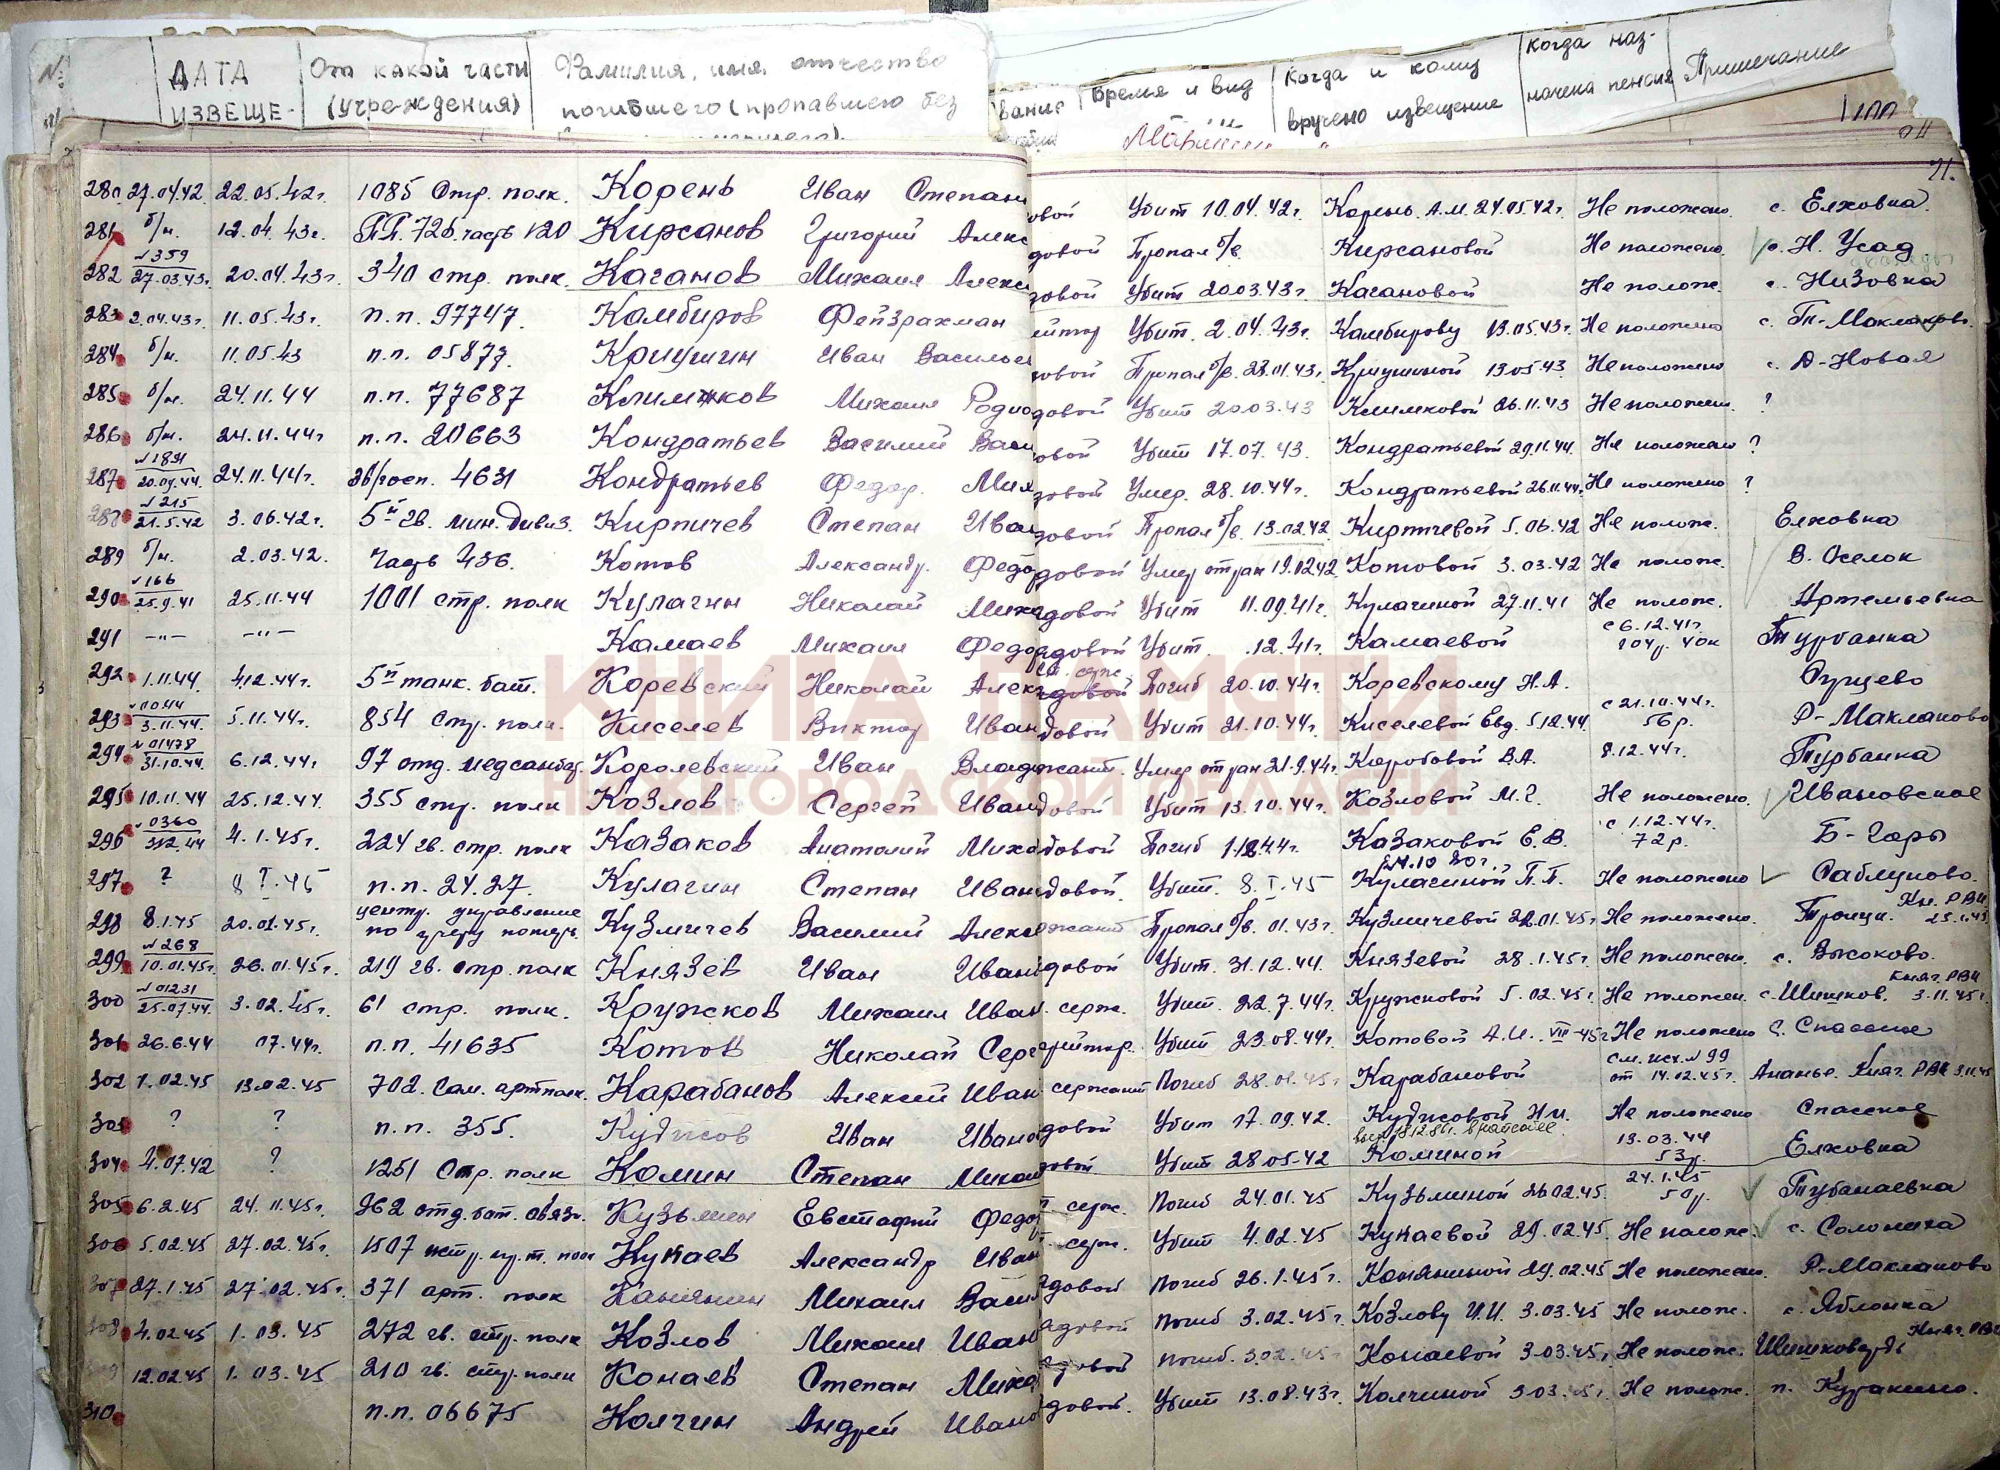 № ДАТА ИЗВЕЩЕ- От какой части (учреждения) Фамилия, имя, отчество погибшего (пропавшего без
Время и вид Когда и кому вручено извещение Когда наз- начена пенсия Примечание
21.
280 27.04.42 22.05.42г. 1085 Стр. полк. Корень Иван Степан овой Убит 10.04.42г. Корень А.М. 24.05.42г. Не положено. с. Елховка.
281 б/н. 12.04.43г. П.П. 726. часть 120 Кирсанов Григорий Алекс довой Пропал б/в. Кирсановой Не положено. с. Н. Усад
282 №359 27.03.43г. 20.04.43г. 340 стр. полк. Каганов Михаил Алекс довой Убит 20.03.43г. Кагановой Не полож. с. Низовка
283 2.04.43г. 11.05.43г. п.п. 97747. Камбиров Фейзрахман Убит. 2.04.43г. Камбирову 13.05.43г. Не положено
284 б/н. 11.05.43 п.п. 05877. Кочушин Иван Василье овой Пропал б/в. 28.01.43г. 13.05.43 Не положено
285 б/н. 24.11.44 п.п. 77687 Климков Михаил Родио довой Убит 20.03.43 Климковой 26.11.43 Не положен. ?
286 б/н. 24.11.44г п.п. 20663 Кондратьев Василий Васи овой Убит 17.07.43. Кондратьевой 29.11.44. Не положено ?
287 №1891 20.09.44. 24.11.44г. эв/госп. 4631 Кондратьев Федор. Мих довой Умер. 28.10.44г. Кондратьевой 26.11.44г. Не положено ?
288 №215 21.5.42 3.06.42г. 5й гв. мин. дивиз. Кирпичев Степан Иван довой Пропал б/в. 13.02.42 Кирпичевой 5.06.42 Не полож. Елховка
289 б/н. 2.03.42. Часть 436. Котов Александр. Федо довой Умер от ран 19.02.42 Котовой 3.03.42 Не полож. В. Оселок
290 №166 25.9.41 25.11.44 1001 стр. полк Кулагин Николай Миха довой Убит 11.09.41г. Кулагиной 27.11.41 Не полож. Артемьевка
291 -"- -"- Камаев Михаил Федо довой Убит. .12.41г. Камаевой с 6.12.41г. 104р. 40к Турбанка
292 1.11.44. 4.12.44г. 5й танк. бат. Коревский Николай Алек ст. серж. Погиб 20.10.44г. Коревскому Н.А. Сущево
293 3.11.44. 5.11.44г. 854 стр. полк. Киселев Виктор Иван довой Убит 21.10.44г. Киселевой Евд. 5.12.44 с 21.10.44г. 56р. Р-Маклаково
294 №01478 31.10.44. 6.12.44г 97 отд. медсанбат. Королевский Иван Влад жант. Умер от ран 21.9.44г. Коробовой В.А. 8.12.44г. Турбанка
295 10.11.44 25.12.44. 355 стр. полк Козлов Сергей Иван довой Убит 13.10.44г. Козловой М.Г. Не положено. Ивановское
296 №0360 4.1.45г. 224 гв. стр. полк Казаков Анатолий Миха довой Погиб Казаковой Е.В. с 1.12.44г. 72р. Б-Горы
297 ? 8.I.45 п.п. 24.27. Кулагин Степан Иван довой. Убит. 8.I.45 Кулагиной П.П. Не положено Саблуково.
298 8.1.45 20.01.45г. центр. управление по учету потерь. Кузмичев Василий Алекс жант Пропал б/в. 01.43г. Кузмичевой 22.01.45г. Не положено. Троицк. Кн. РВК
299 №268 10.01.45г. 26.01.45г. 219 гв. стр. полк Князев Иван Иван довой Убит. 31.12.44. Князевой 28.1.45г. Не положено. с. Высоково.
300 №01231 25.07.44. 3.02.45г. 61 стр. полк. Кружков Михаил Иван серж. Убит. 22.7.44г. Кружковой 5.02.45г. Не положен. с. Шишков. Княг. РВК 3.11.45г.
301 26.6.44 07.44г. п.п. 41635 Котов Николай Серг Убит 23.08.44г. Котовой А.И. VIII-45г Не положено с. Спасское
302 1.02.45 13.02.45 702. Сам. артполк. Карабанов Алексей Иван сержант Погиб 28.01.45г. Карабановой см. исх. №99 от 14.02.45г. Ананье. Княг. РВК
303 ? ? п.п. 355. Кудисов Иван Ивано довой Убит 17.09.42. Кудисовой Н.И. Не положено Спасское
304 4.07.42 ? 1251 Стр. полк Комин Степан Михаи довой Убит 28.05.42 Коминой 13.03.44 53р. Елховка
305 6.2.45 24.11.45г. 962 отд. бат. связи. Кузьмин Евстафий Федо серж. Погиб 24.01.45 Кузьминой 26.02.45. 24.1.45 50р. Тубанаевка
306 5.02.45 27.02.45г. 1507 истр. пр.т. полк Кунаев Александр Иван серж. Убит 4.02.45 Кунаевой 29.02.45. Не полож. с. Соломиха
307 27.1.45 27.02.45г. 371 арт. полк Канянин Михаил Васи довой Погиб 26.1.45г. Коняниной 29.02.45 Не положено. Р-Маклаково
308 4.02.45 1.03.45 272 гв. стр. полк Козлов Михаил Иван довой Погиб 3.02.45г. Козлову И.И. 3.03.45 Не полож. с. Яблонка
12.02.45 1.03.45 210 гв. стр. полк Конаев Степан Миха довой Погиб. 3.02.45г Конаевой 3.03.45г. Не полож. Шишковердь Княг. РВК
310 п.п. 06675 Колчин Андрей Ивано довой. Убит 13.08.43г. Колчиной 3.03.45г. Не полож. п. Куракино.
КНИГА ПАМЯТИ
НИЖЕГОРОДСКОЙ ОБЛАСТИ